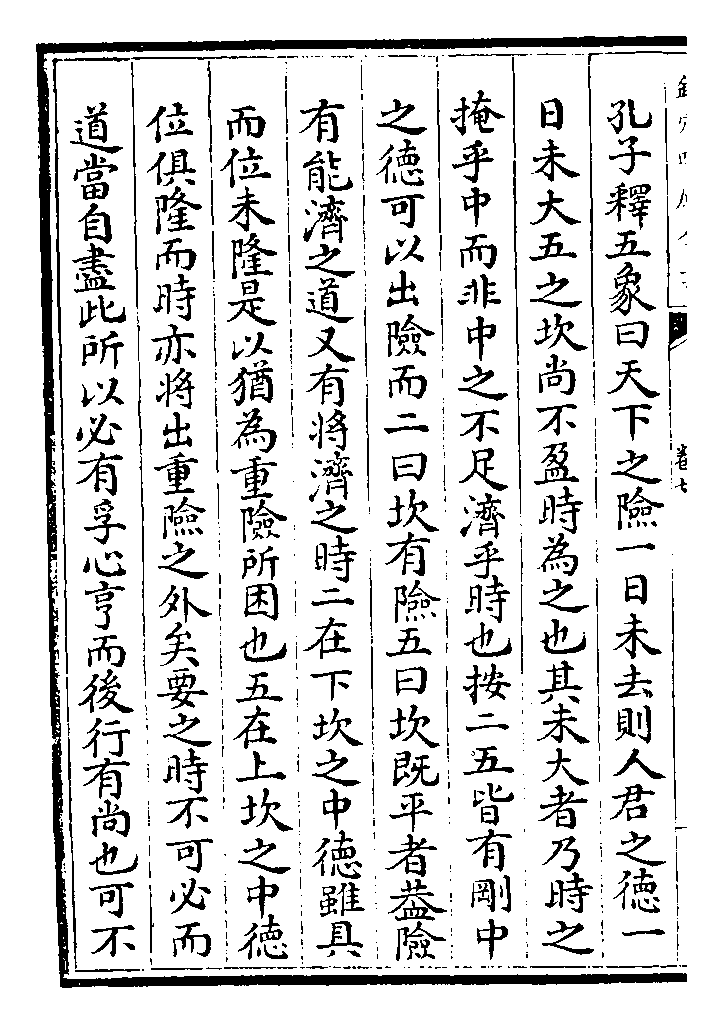 孔子釋五象曰天下之險一日未去則人君之德一
日未大五之坎尚不盈時為之也其未大者乃時之
掩乎中而非中之不足濟乎時也按二五皆有剛中
之德可以出險而二曰坎有險五曰坎既平者葢險
有能濟之道又有將濟之時二在下坎之中德雖具
而位未隆是以猶為重險所困也五在上坎之中德
位俱隆而時亦將出重險之外矣要之時不可必而
道當自盡此所以必有孚心亨而後行有尚也可不
卷七